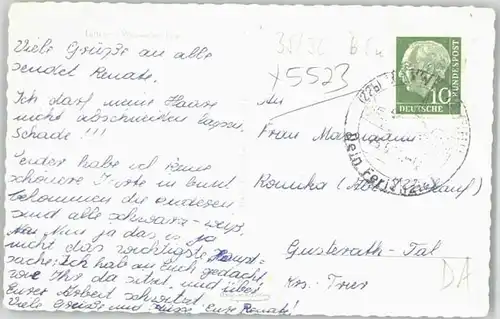 Viele Grüße an alle
sendet Renate.
Ich darf meine Haare
nicht abschneiden lassen,
Schade!!!
Leider habe ich keine
schönere Karte in bunt
bekommen die anderen
sind alle schwarz-weiß.
Nun ja das ist ja
nicht das wichtigste Haupt-
sache: Ich hab an Euch gedacht
wie Ihr da sitzt und über
Eurer Arbeit schwitzt
Viele Grüße und Eure Renate!
35/52
x5523
An
Frau
Romika
Gusterath-Tal
Krs. Trier
DA
10
DEUTSCHE
BUNDESPOST
(22c)